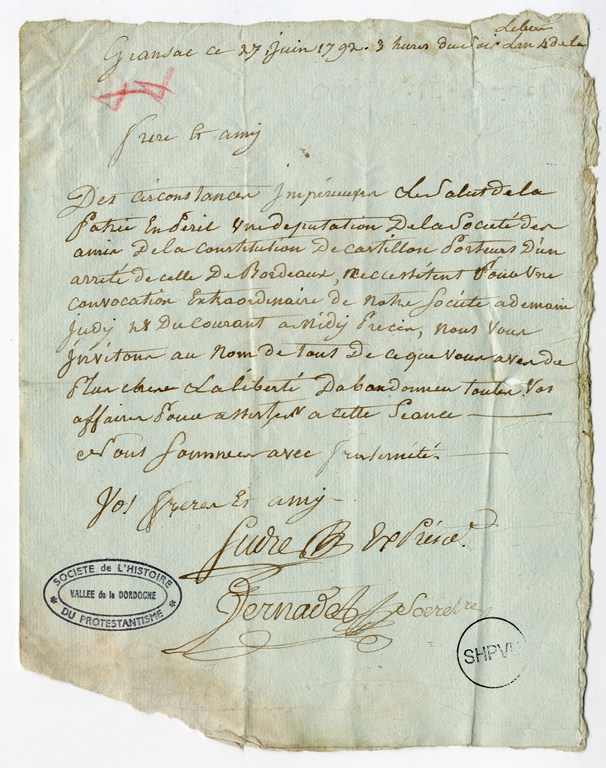 Gransac ce 27 juin 1792. 3 hures du Soir Lan 4 de la
Liber
frere Et amij
Des circonstances Jmpérieuses Le Salut de la
Patrie En Peril Une deputation De la Societé des
amis De la constitution De castillon Porteurs D'un
arreté de celle De Bordeaux, necessitent Pour Une
convocation Extraordinaire de notre Societe a demain
Judy 28 Du courant a Midy Precis, nous Vous
Jnvitons au nom de tous De ce que Vous aves de
Plus chere La liberté Dabandonner toutes Vos
affaires Pour assister a cette Seance
Nous Sommes avec fraternité
Vos freres Et amij
Sudre Ex Présdt.
Bernadet Secretre
SOCIETE de L'HISTOIRE
VALLEE de la DORDOGNE
DU PROTESTANTISME
SHPVD